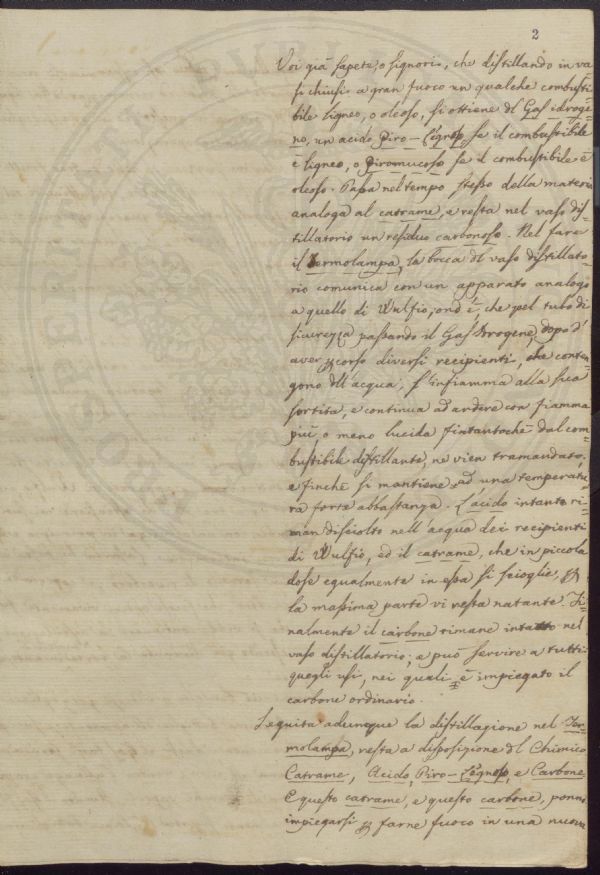 2
Voi già sapete, o Signori, che distillando in va=
si chiusi a gran fuoco un qualche combusti=
bile ligneo, o oleoso, si ottiene dl Gas idroge=
no, un acido Piro-Legnoso se il combustibile
è ligneo, o Piromucoso se il combustibile è
oleoso. Passa nel tempo stesso della materia
analoga al catrame, e resta nel vaso dis=
tillatorio un residuo carbonoso. Nel fare
il Termolampa, la bocca dl vaso distillato=
rio comunica con un apparato analogo
a quello di Wulfio, ond'è, che pel tubo di
sicurezza passando il Gas Idrogene, dopo d'
aver corso diversi recipienti, che conten=
gono dll'acqua, s'infiamma alla sua
sortita, e continua ad ardere con fiamma
più, o meno lucida fintantochè dal com=
bustibile distillante, ne vien tramandato,
e finchè si mantiene ad una temperatu=
ra forte abbastanza. L'acido intanto ri=
man disciolto nell'acqua dei recipienti
di Wulfio, ed il catrame, che in piccola
dose egualmente in essa si scioglie,
la massima parte vi resta natante. Fi=
nalmente il carbone rimane intatto nel
vaso distillatorio, e può servire a tutti
quegli usi, nei quali è impiegato il
carbone ordinario.
Seguita adunque la distillazione nel Ter=
molampa, resta a disposizione dl Chimico
Catrame, Acido, Piro-Legnoso, e Carbone.
E questo catrame, e questo carbone, ponno
impiegarsi farne fuoco in una nuova